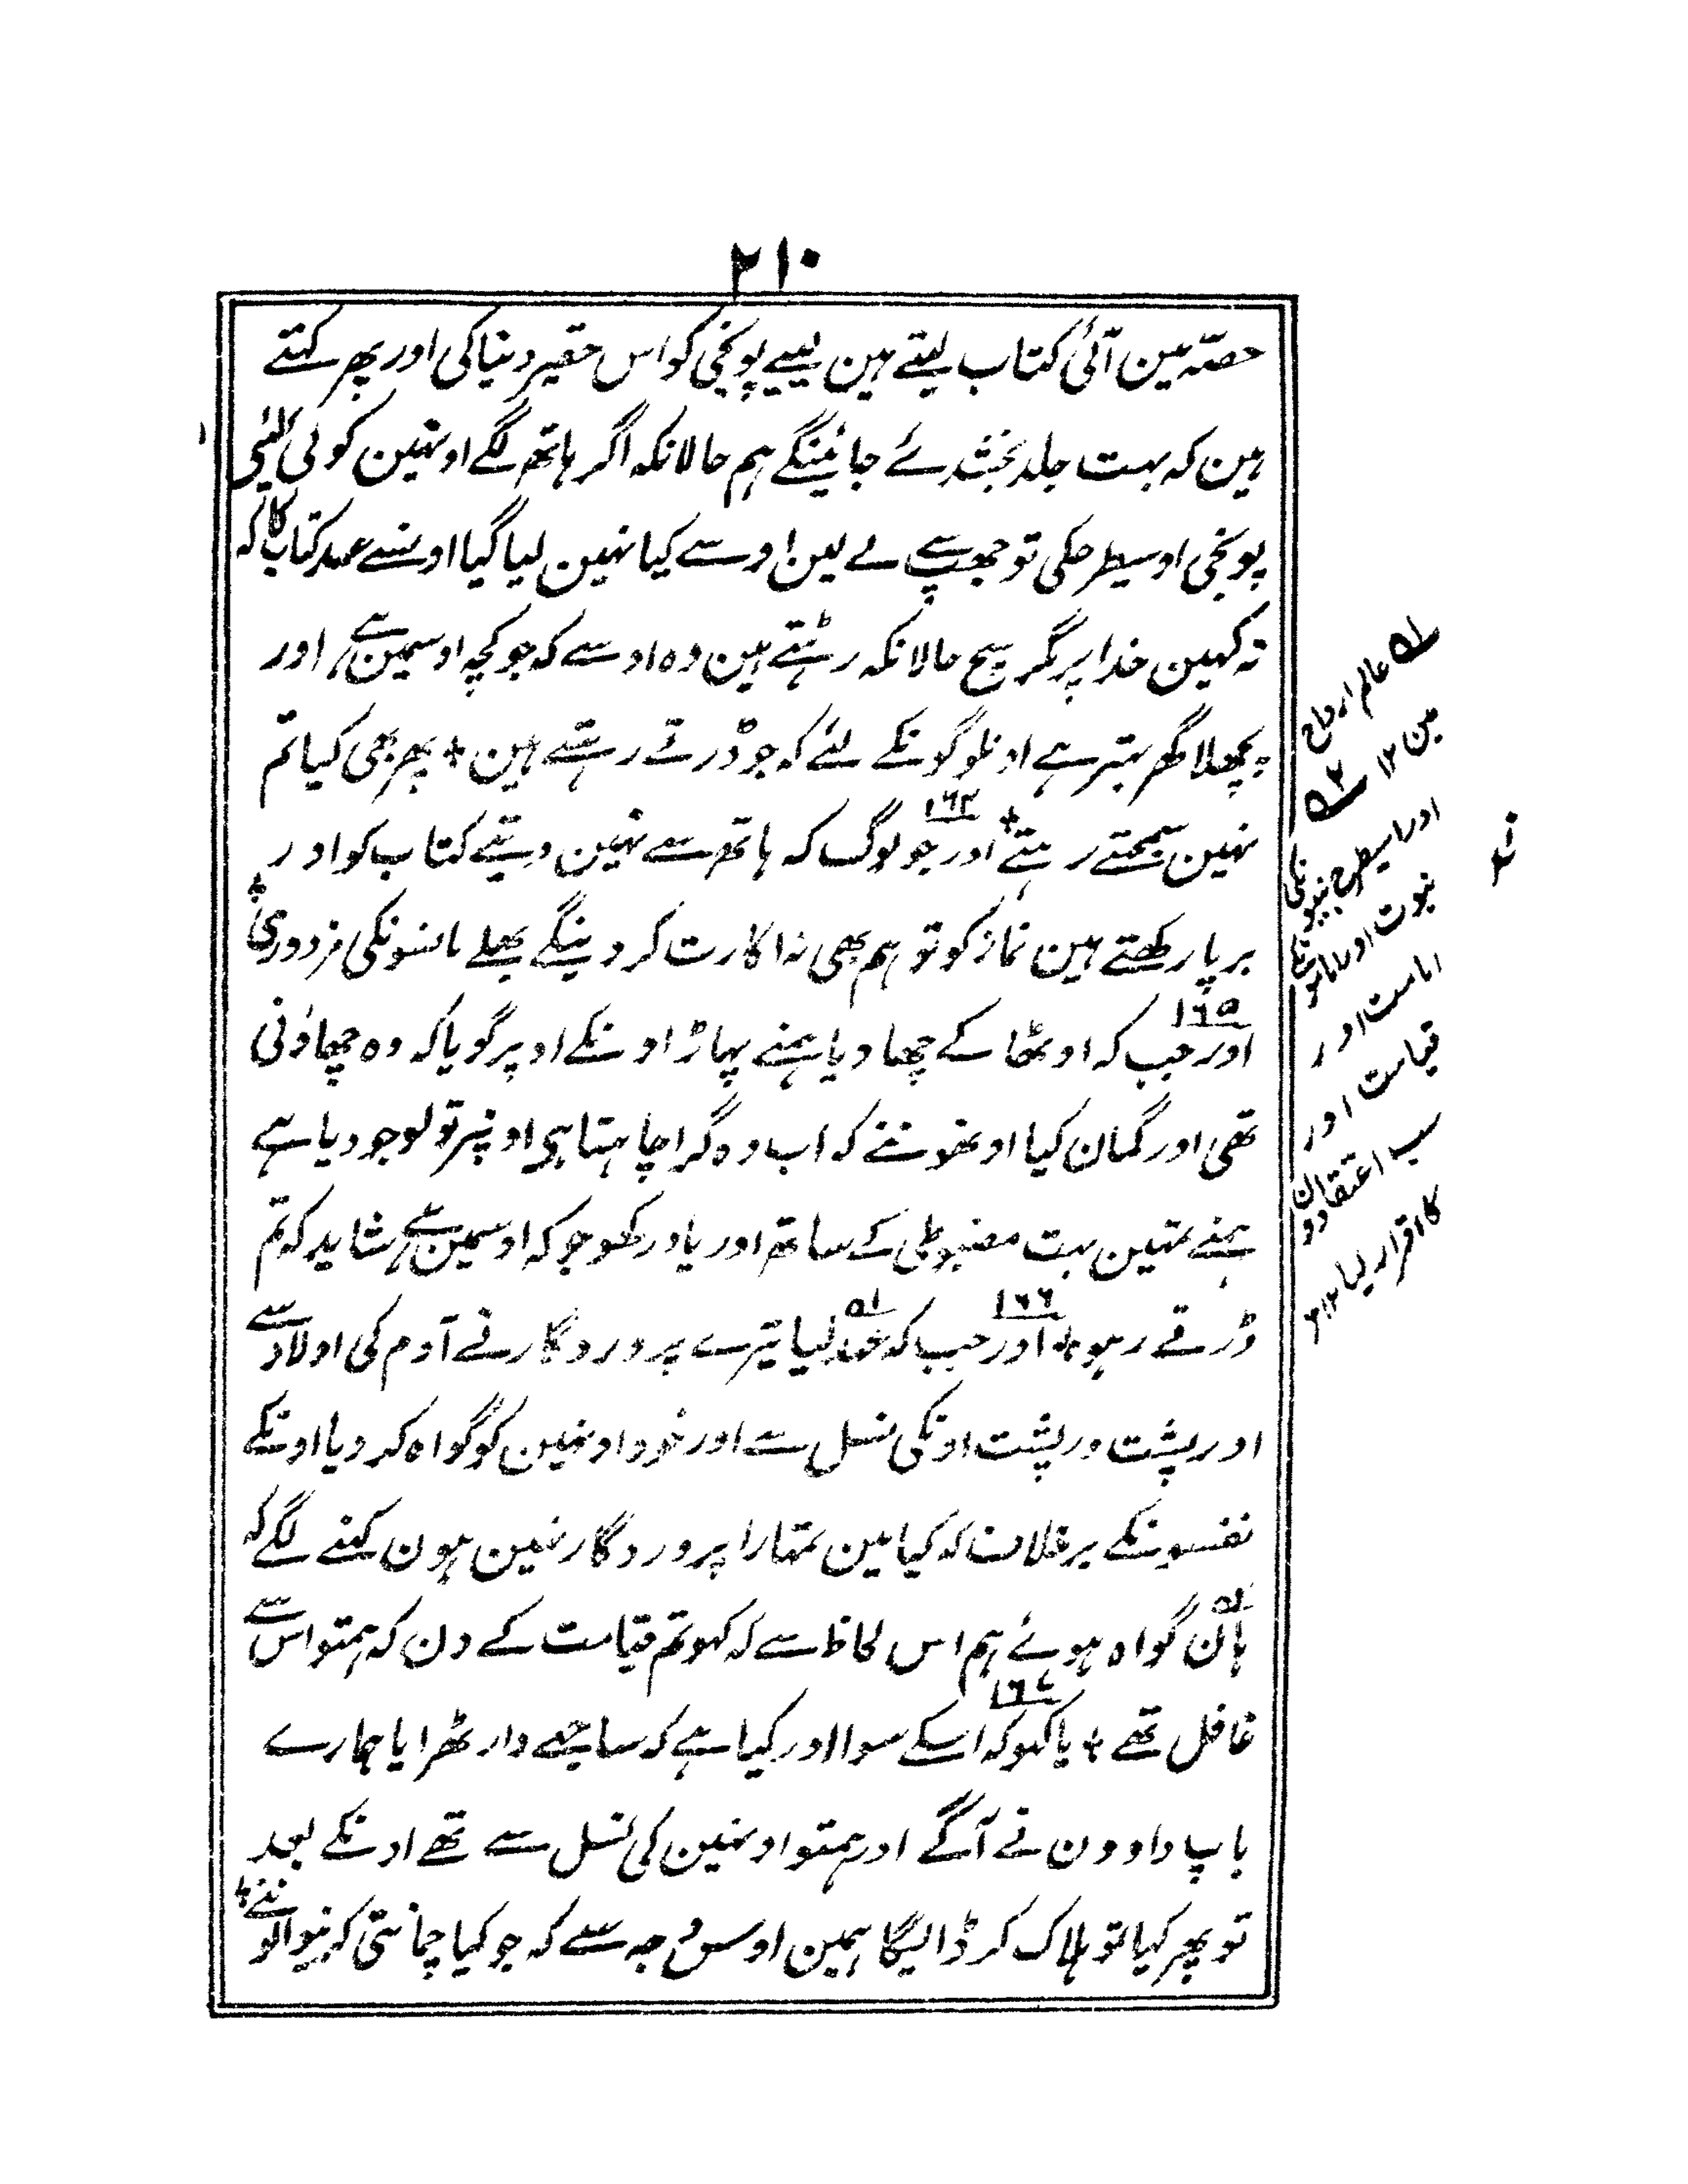 ۲۱۰
حصّہ مین آئی کتاب لیتے ہین لیسے پونجی کو اس حقیر دنیا کی اور پھر کہتے
ہین کہ بہت جلد بخشدئے جائینگے ہم حالانکہ اگر ہاتھ لگے اونہین کوئی
پونجی اوسیطرحکی تو جھپ سے لے لین اوسے کیا نہین لیا گیا اونسے عہد کتاب کا کہ
نہ کہین خدا پر مگر سچ حالانکہ رٹتے ہین وہ اوسے کہ جو کچھ اوسمین ہے اور
پچھلا گھر بہتر ہے اونلوگونکے لئے کہ جو ڈرتے رہتے ہین + پھر بھی کیا تم
نہین سمجھتے رہتے + ۱۶۴ اور جو لوگ کہ ہاتھ سے نہین دیتے کتاب کو اور
برپا رکھتے ہین نماز کو تو ہم بھی نہ اکارت کر دینگے بھلے مانسونکی مزدوری +
۱۶۵ اور جب کہ اوٹھا کے چھا دیا ہمنے پہاڑ اونکے اوپر گویا کہ وہ چھاؤنی
تھی اور گمان کیا اونھوننے کہ اب وہ گرا چاہتا ہی اونپر تو لو جو دیا ہے
ہمنے تمہین بہت مضبوطی کے ساتھ اور یاد رکھو جو کہ اوسمین ہے شاید کہ تم
ڈرتے رہو + ۱۶۶ اور جب کہ عہد ۵۱ لیا تیرے پروردگار نے آدم کی اولاد سے
اور پشت در پشت اونکی نسل سے اور خود اونھین کو گواہ کر دیا اونکے
نفسونکے برخلاف کہ کیا مین تمہارا پروردگار نہین ہون کہنے لگے کہ
ہان گواہ ہوئے ہم اس لحاظ سے کہ کہو تم قیامت کے دن کہ ہمتو اس سے
غافل تھے + ۱۶۷ یا کہو کہ اسکے سوا اور کیا ہے کہ ساجھے دار ٹھرایا ہمارے
باپ داوون نے آگے اور ہمتو اونہین کی نسل سے تھے اونکے بعد
تو پھر کیا تو ہلاک کر ڈالیگا ہمین اوس وجہ سے کہ جو کیا چھانٹی کرنیوالوننے +
عالم ارواح
مین ۱۲
اور اسیطرح نبیونکی
نبوت اور امامونکی
امامت اور
قیامت اور
سب اعتقادون
کا اقرار لیا ۱۲